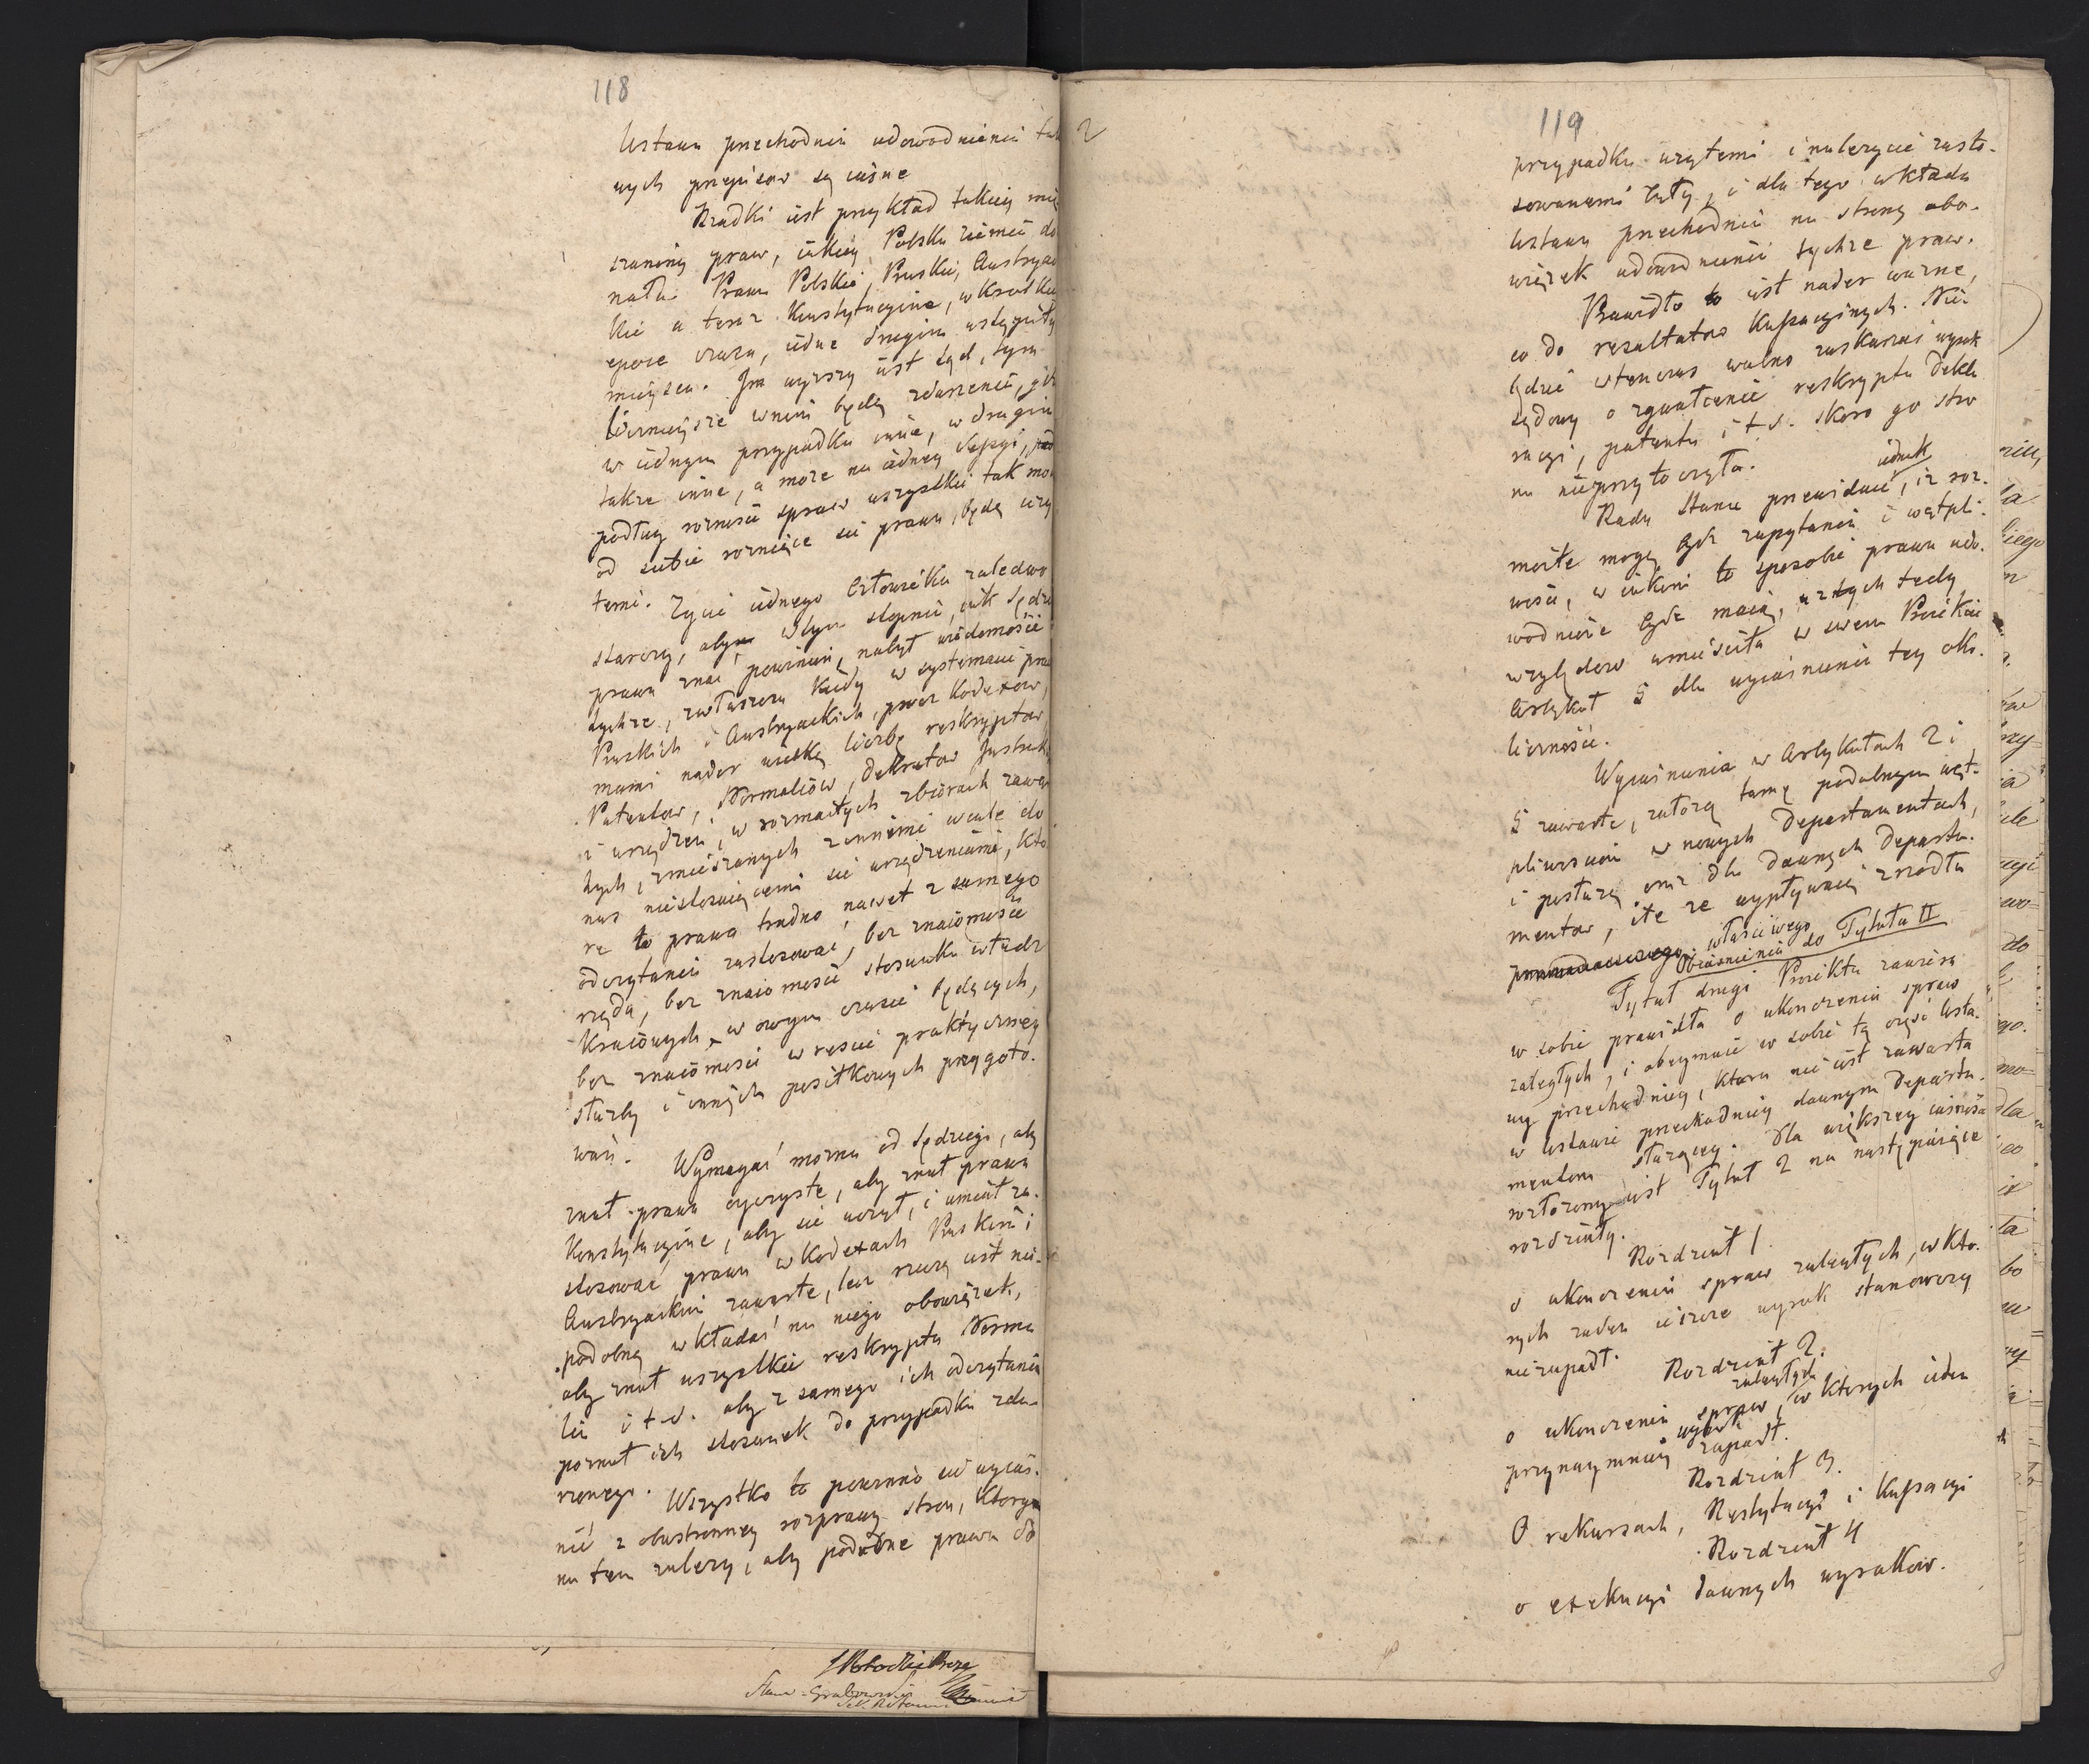 118
Ustawa przechodnia udowodnienia
wych przepisow są iasne
Rzadki iest przykład takiey
szaniny praw, iakiey Polska ziemia do
nała. Prawa Polskie, Pruskie, Austryac
kie a teraz Konstytucyine, w krotkiey
epoce czasu, iedne drugim ustępuiły
mieysca. Im wyższy iest sąd, tym
licznieysze w nim będą zdarzenia, gdzie
w iednym przypadku insze, w drugim
także inne, a może na iedney sessyi,
podług rożności spraw wszystkie tak mo
od siebie rożniące się prawa, będą uży
temi. Życie iednego Człowieka zaledwo
starczy, aby w tym stopniu, iak Sędzia
prawa znać powinien, nabył wiadomości
tychże, zwłaszcza kiedy w systemacie praw
Pruskich i Austryackich, procz Kodexow,
mamy nader wielką liczbę reskryptow
Patentow, Normaliow, Dekretow Instruk
i urządzeń, w rozmaitych zbiorach zawar
tych, zmieszanych z innemi wcale do
nas niestosuiącemi się urządzeniami, kto
re to prawa trudno nawet z samego
odczytania zastosować, bez znaiomości
rządu, bez znaiomości stosunku władz
Kraiowych, w owym czasie będących,
bez znaiomości w reście praktyczney
służby i innych posiłkowych przygoto-
wań.
Wymagać można od Sędziego, aby
znał prawa oyczyste, aby znał prawa
Konstytucyine, aby się uczył, i umiał za-
stosować prawa w Kodexach Pruskim i
Austryackim zawarte, lecz rzeczą iest nie-
podobną wkładać na niego obowiązek,
aby znał wszystkie reskrypta Norma
lia i t.d. aby z samego ich odczytania
poznał ich stosunek do przypadku zda-
rzonego. Wszystko to powinno się wyias-
nić z obustronney rozprawy stron, ktorym
na tem zależy, aby podobne prawa do
Grabowski
2
119
przypadku użytemi i należycie zasto-
sowanemi były, i dla tego wkłada
Ustawa przechodnia na strony obo-
wiązek udowodnienia tychże praw.
Prawidło to iest nader ważne,
co do rezultatow Kassacyinych. Nie
będzie wtenczas wolno zaskarżać wyrok
sądowy o zgwałcenie reskryptu Dekla
racyi, patentu i t.d. skoro go stro
na nieprzytoczyła.
Rada Stanu przewiduie iednak, iż roz-
maite mogą bydź zapytania i wątpli-
wości, w iakim to sposobie prawa udo-
wodnione bydź maią, z tych tedy
względow umieściła w swem Proiekcie
Artykuł 5 dla wyiaśnienia tey oko-
liczności.
Wyiaśnienia w Artykułach 2 i
5 zawarte, założą tamę podobnym wąt-
pliwościom w nowych Departamentach,
i posłużą oraz dla dawnych Departa-
mentow, ile że wypływaią z zrodła
właściwego
Obiaśnienia do Tytułu II
Tytuł drugi Proiektu zawiera
w sobie prawidła o ukończeniu spraw
zaległych, i obeymuie w sobie tę część Usta-
wy przechodniey, ktora nie iest zawarta
w Ustawie przechodniey dawnym Departa-
mentom służącey. Dla większey iasności
rozłożony iest Tytuł 2 na następuiące
rozdziały.
Rozdział 1.
o ukończeniu spraw zaległych, w kto-
rych żaden ieszcze wyrok stanowczy
niezapadł.
Rozdział 2.
o ukończeniu spraw zaległych, w ktorych ieden
przynaymniey wyrok zapadł.
Rozdział 3.
O rekursach, Restytucyi i Kassacyi
Rozdział 4
o exekucyi dawnych wyrokow.